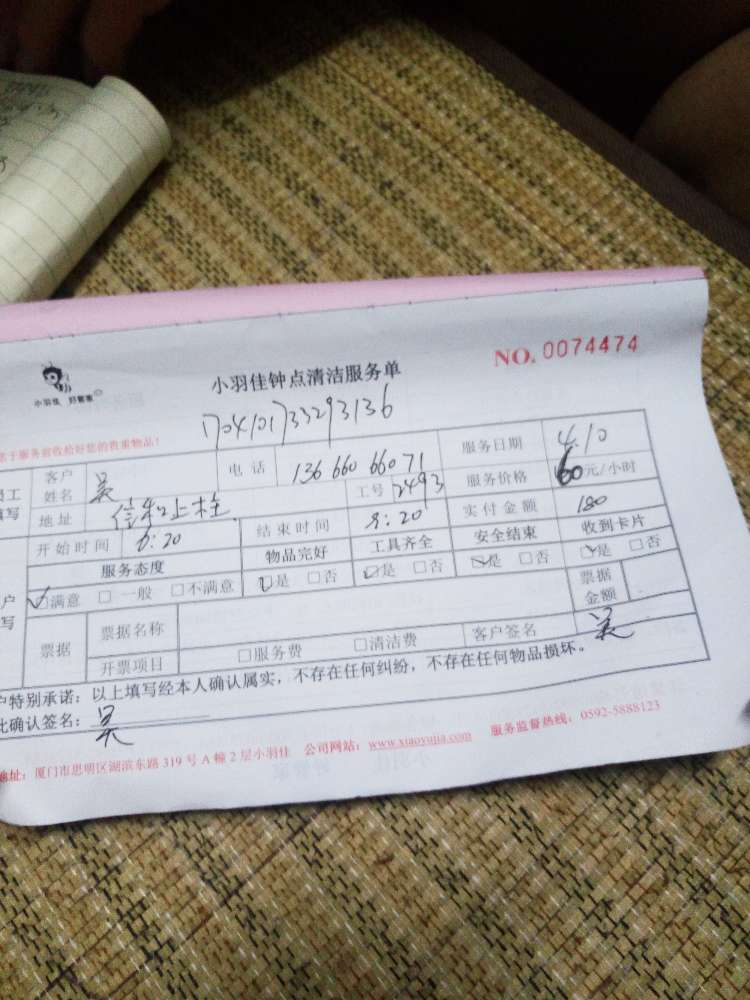 小羽佳 好管家
小羽佳钟点清洁服务单
NO. 0074474
1704101733293136
于服务前收拾好您的贵重物品！
员工
填写
客户
姓名
吴
电话
136 660 660 71
服务日期
4.10
地址
信和上柱
工号
2493
服务价格
60元/小时
开始时间
6:20
结束时间
9:20
实付金额
180
服务态度
物品完好
工具齐全
安全结束
收到卡片
户
写
☑满意 □一般 □不满意
☑是 □否
☑是 □否
☑是 □否
☑是 □否
票据
票据名称
票据
金额
开票项目
□服务费 □清洁费
客户签名
吴
户特别承诺：以上填写经本人确认属实，不存在任何纠纷，不存在任何物品损坏。
此确认签名：吴
地址：厦门市思明区湖滨东路 319 号 A 幢 2 层小羽佳 公司网站：www.xiaoyujia.com 服务监督热线：0592-5888123